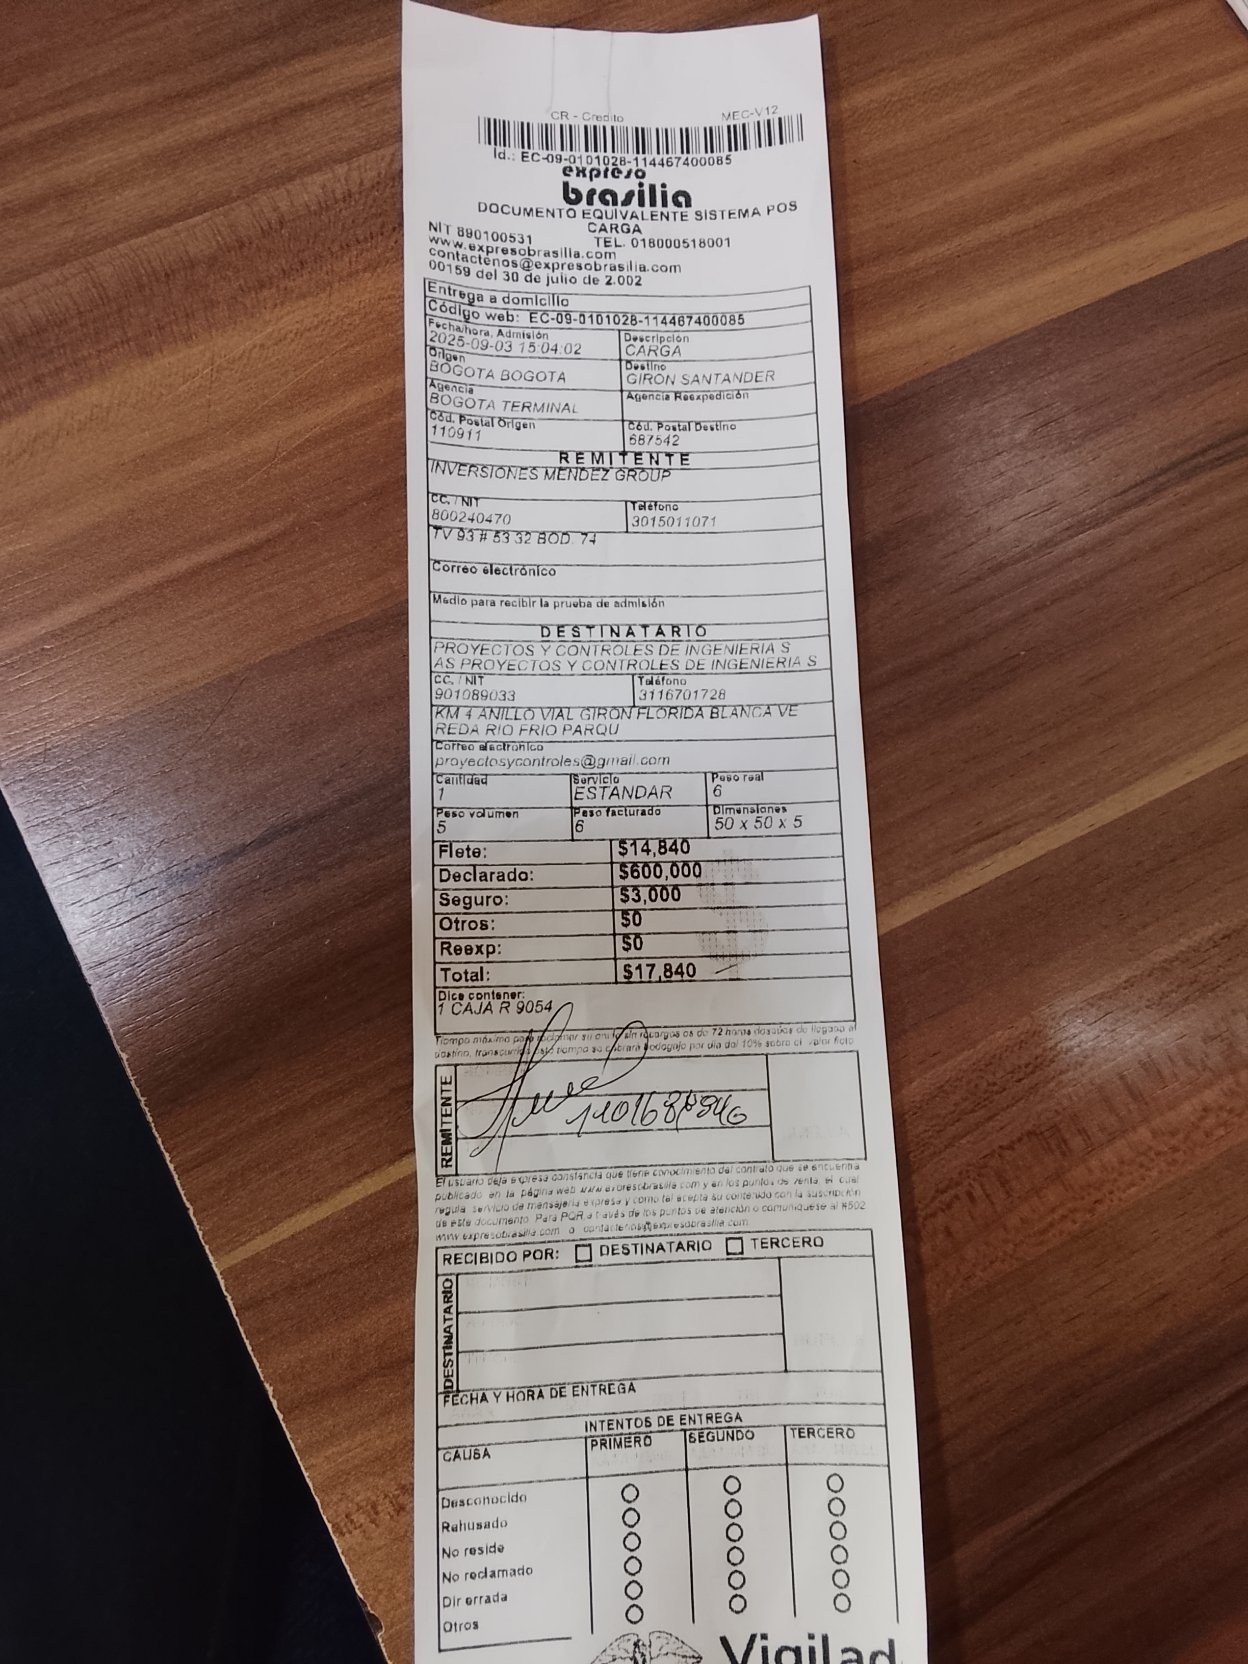 CR - Credito MEC-V12
Id.: EC-09-0101028-114467400085
expreso
brasilia
DOCUMENTO EQUIVALENTE SISTEMA POS
CARGA
NIT 890100531 TEL. 018000518001
www.expresobrasilia.com
contactenos@expresobrasilia.com
00159 del 30 de julio de 2.002
Entrega a domicilio
Código web: EC-09-0101028-114467400085
Fecha/hora, Admisión Descripción
2025-09-03 15:04:02 CARGA
Origen Destino
BOGOTA BOGOTA GIRON SANTANDER
Agencia Agencia Reexpedición
BOGOTA TERMINAL
Cód. Postal Origen Cód. Postal Destino
110911 687542
REMITENTE
INVERSIONES MENDEZ GROUP
CC. / NIT Teléfono
800240470 3015011071
TV 93 # 53 32 BOD. 74
Correo electrónico
Medio para recibir la prueba de admisión
DESTINATARIO
PROYECTOS Y CONTROLES DE INGENIERIA S
AS PROYECTOS Y CONTROLES DE INGENIERIA S
CC. / NIT Teléfono
901089033 3116701728
KM 4 ANILLO VIAL GIRON FLORIDA BLANCA VE
REDA RIO FRIO PARQU
Correo electrónico
proyectosycontroles@gmail.com
Cantidad Servicio Peso real
1 ESTANDAR 6
Peso volumen Peso facturado Dimensiones
5 6 50 x 50 x 5
Flete: $14,840
Declarado: $600,000
Seguro: $3,000
Otros: $0
Reexp: $0
Total: $17,840
Dice contener:
1 CAJA R 9054
Tiempo máximo para reclamar su envío sin recargos es de 72 horas después de llegada al
destino, transcurrido este tiempo se cobrará bodegaje por día del 10% sobre el valor flete
REMITENTE
El usuario deja expresa constancia que tiene conocimiento del contrato que se encuentra
publicado en la página web www.expresobrasilia.com y en los puntos de venta, el cual
regula servicio de mensajería expresa y como tal acepta su contenido con la suscripción
de este documento. Para PQR a través de los puntos de atención o comuníquese al #502
www.expresobrasilia.com o contactenos@expresobrasilia.com
RECIBIDO POR: DESTINATARIO TERCERO
DESTINATARIO
FECHA Y HORA DE ENTREGA
INTENTOS DE ENTREGA
CAUSA PRIMERO SEGUNDO TERCERO
Desconocido
Rehusado
No reside
No reclamado
Dir errada
Otros
Vigilad